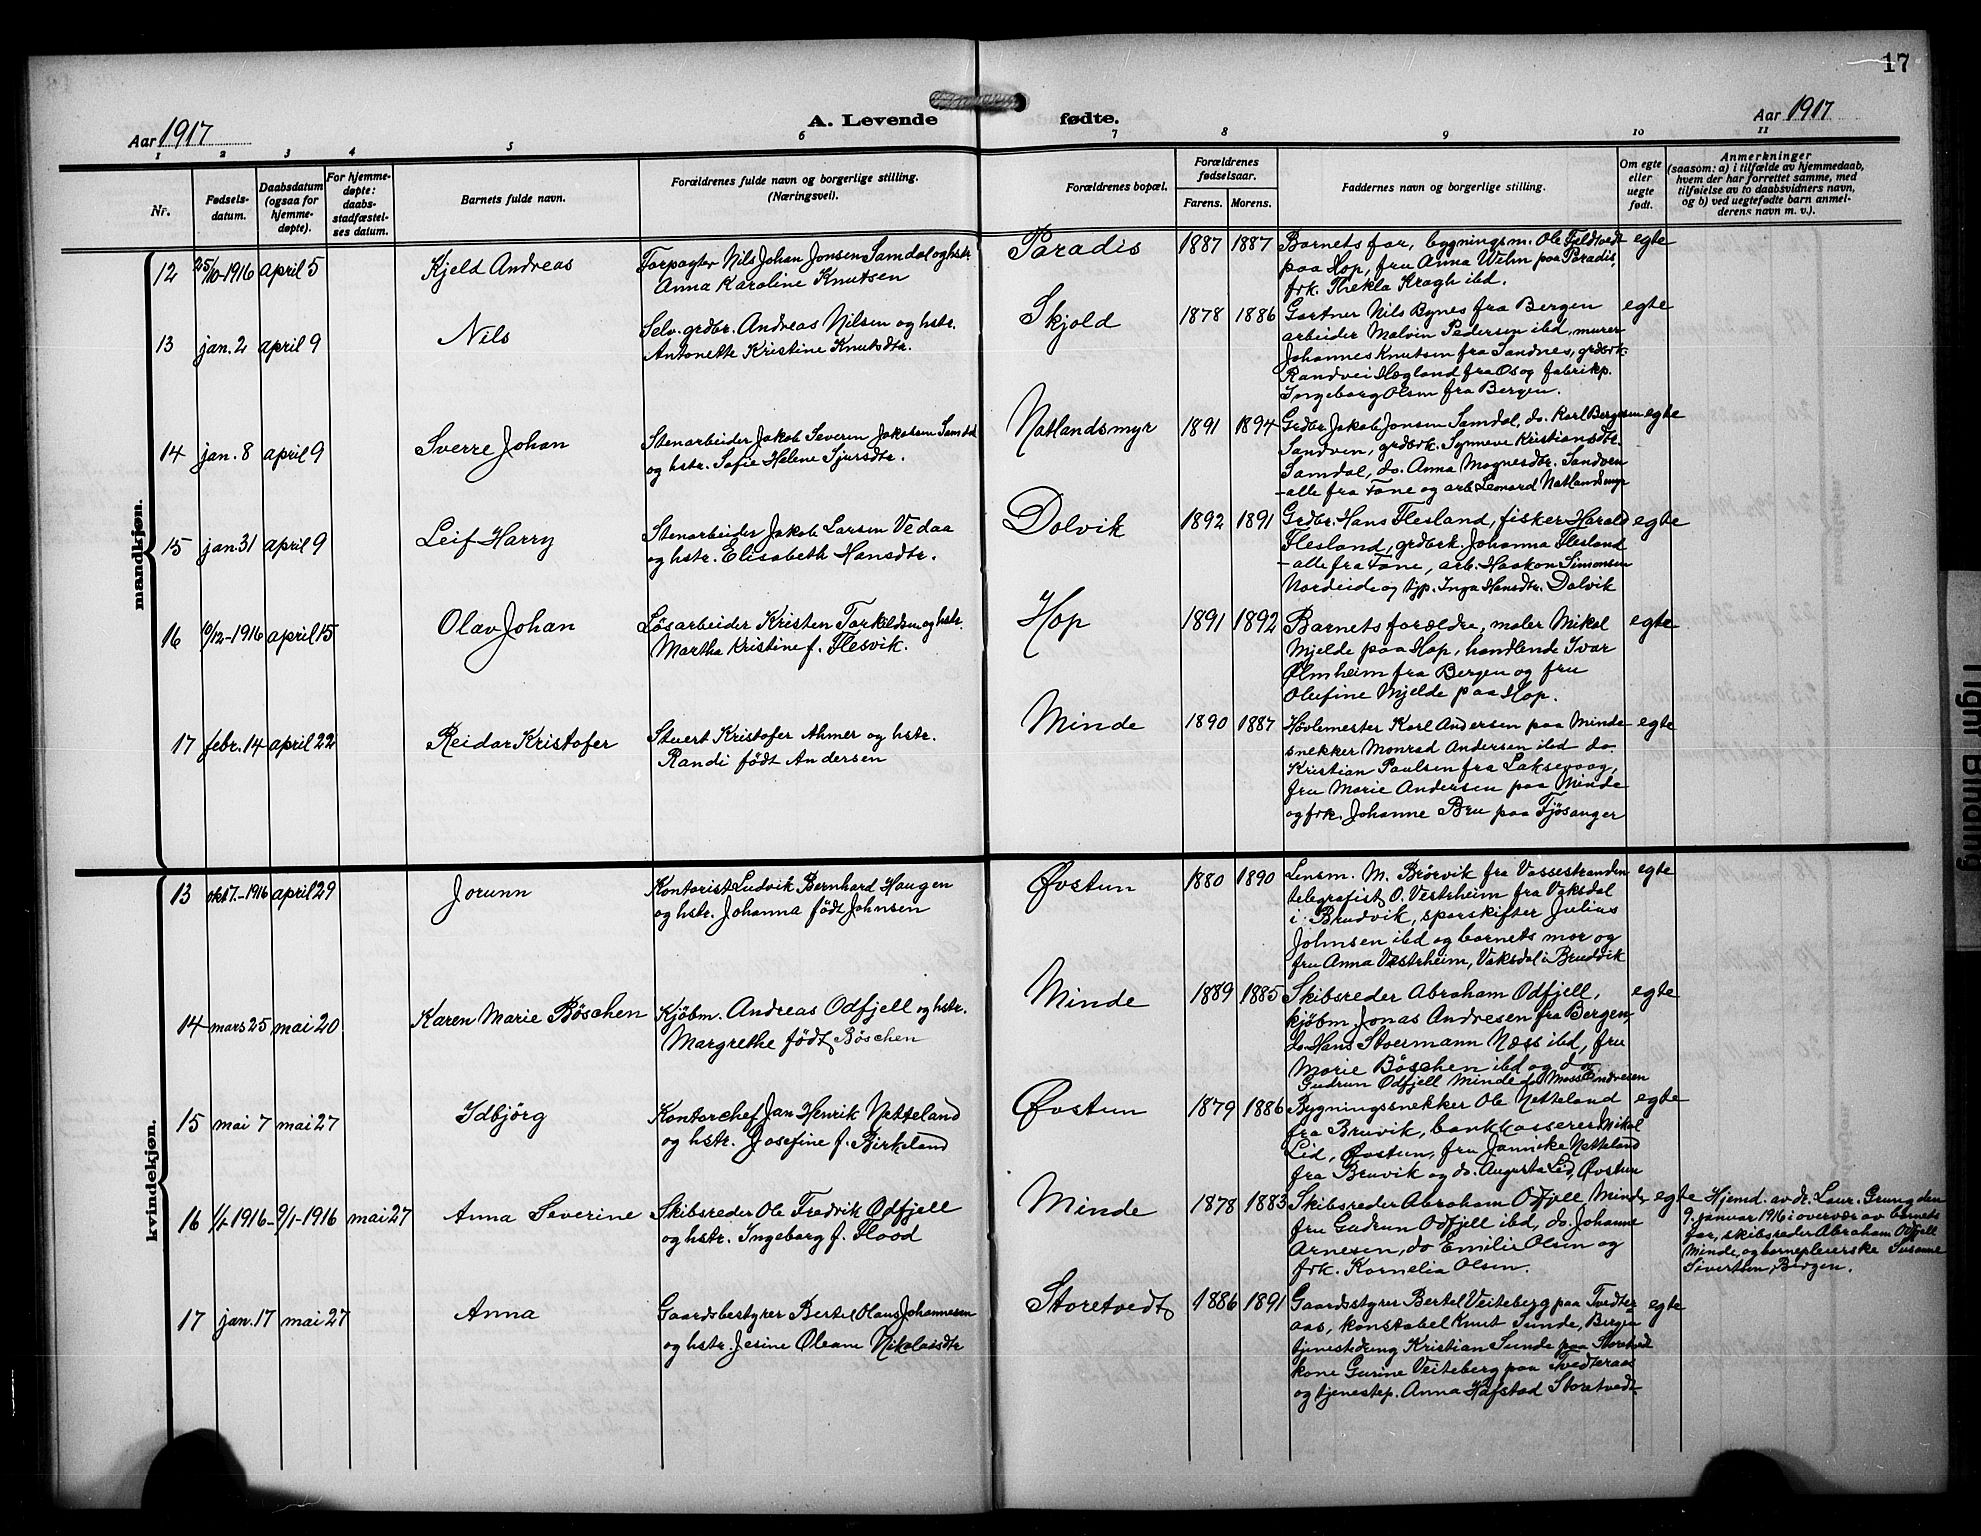 17
A. Levende fødte.
Aar 1917
Aar 1917
1 2 3 4 5 6 7 8 9 10 11
Nr.
Fødsels-
datum.
Daabsdatum
(ogsaa for
hjemme-
døpte).
For hjemme-
døpte:
daabs-
stadfæstel-
ses datum.
Barnets fulde navn.
Forældrenes fulde navn og borgerlige stilling.
(Næringsvei).
Forældrenes bopæl.
Forældrenes
fødselsaar.
Farens. Morens.
Faddernes navn og borgerlige stilling.
Om egte
eller
uegte
født.
Anmerkninger
(saasom: a) i tilfælde av hjemmedaab,
hvem der har forrettet samme, med
tilføielse av to daabsvidners navn,
og b) ved uegtefødte barn anmel-
derens navn m. v.).
mandkjøn.
12 25/10-1916 april 5 Kjeld Andreas
Forpagter Nils Johan Jonsen Samdal og hstr.
Anna Karoline Knutsen
Paradis 1887 1887
Barnets far, bygningsm. Ole Fjeldtvedt
paa Hop, fru Anna Wehn paa Paradis,
frk. Thekla Kragh ibd.
egte
13 jan. 2 april 9 Nils
Selv. grdbr. Andreas Nilsen og hstr.
Antonette Kristine Knutsdtr.
Skjold 1878 1886
Gartner Nils Bynes fra Bergen
arbeider Malvin Pedersen ibd, murer
Johannes Knutsen fra Sandnes, grdbrk.
Randvei Hægland fra Os og fabrikp.
Ingeborg Olsen fra Bergen.
egte
14 jan. 8 april 9 Sverre Johan
Stenarbeider Jakob Severin Jakobsen Samdal
og hstr. Sofie Helene Sjursdtr.
Natlandsmyr 1891 1894
Grdbr. Jakob Jonsen Samdal, do. Karl Bergesen
Sandven, grdbrk. Synneve Kristiansdtr.
Samdal, do. Anna Magnesdtr. Sandven
-alle fra Fane og arb. Leonard Natlandsmyr
egte
15 jan. 31 april 9 Leif Harry
Stenarbeider Jakob Larsen Vedaa
og hstr. Elisabeth Hansdtr.
Dolvik 1892 1891
Grdbr. Hans Flesland, fisker Harald
Flesland, grdbrk. Johanna Flesland
-alle fra Fane, arb. Haakon Simonsen
Nordeide og tjp. Inga Hansdtr. Dolvik
egte
16 9/12-1916 april 15 Olav Johan
Løsarbeider Kristen Torkildsen og hstr.
Martha Kristine f. Flesvik.
Hop 1891 1892
Barnets forældre, maler Mikal
Mjelde paa Hop, handlende Ivar
Ølmheim fra Bergen og fru
Olufine Mjelde paa Hop.
egte
17 febr. 14 april 22 Reidar Kristofer
Stuert Kristofer Ahmer og hstr.
Randi født Andersen
Minde 1890 1887
Høvlemester Karl Andersen paa Minde
snekker Monrad Andersen ibd do.
Kristian Paulsen fra Laksevaag,
fru Marie Andersen paa Minde
og frk. Johanne Bru paa Fjøsanger
egte
kvindekjøn.
13 okt 7.-1916 april 29 Jorunn
Kontorist Ludvik Bernhard Haugen
og hstr. Johanna født Johnsen
Øvstun 1880 1890
Lensm. M. Brørvik fra Vossestranden
telegrafist O. Vestrheim fra Vaksdal
i Brudvik, sporskifter Julius
Johnsen ibd og barnets mor og
fru Anna Vestrheim, Vaksdal i Brudvik
egte
14 mars 25 mai 20 Karen Marie Bøschen
Kjøbm. Andreas Odfjell og hstr.
Margrethe født Bøschen
Minde 1889 1885
Skibsreder Abraham Odfjell,
kjøbm. Jonas Andresen fra Bergen,
do. Hans Stoermann Næss ibd, fru
Marie Bøschen ibd og do
Gudrun Odfjell Minde
egte
15 mai 7 mai 27 Idbjörg
Kontorchef Jan Henrik Netteland
og hstr. Josefine f. Birkeland
Øvstun 1879 1886
Bygningssnekker Ole Netteland
fra Bruvik, bankkasserer Mikal
Lid, Øvstun, fru Jannike Netteland
fra Bruvik og do. Augusta Lid, Øvstun
egte
16 1/1 1916- 9/1-1916 mai 27 Anna Severine
Skibsreder Ole Fredrik Odfjell
og hstr. Ingeborg f. Flood
Minde 1878 1883
Skibsreder Abraham Odfjell Minde
fru Gudrun Odfjell ibd, do. Johanne
Arnesen, do Emilie Olsen og
frk. Kornelia Olsen.
egte
Hjemd. av dr. Laur. Grung den
9. januar 1916 i overvær av barnets
far, skibsreder Abraham Odfjell
Minde, og barnepleierske Susanne
Sivertsen, Bergen.
17 jan. 17 mai 27 Anna
Gaardsbestyrer Bertel Olaus Johannesen
og hstr. Jesine Oleane Nikolaisdtr
Storetvedt 1886 1891
Gaardsstyrer Bertel Veiteberg paa Tvedter-
aas, konstabel Knut Sunde, Bergen
tjenestedreng Kristian Sunde paa Storetvedt
kone Gurine Veiteberg paa Tvedteraas
og tjenestep. Anna Hafstad Storetvedt
egte
Tight Binding